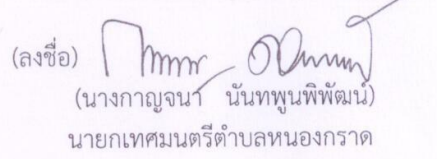 (ลงชื่อ)
(นางกาญจนา นันทพูนพิพัฒน์)
นายกเทศมนตรีตำบลหนองกราด